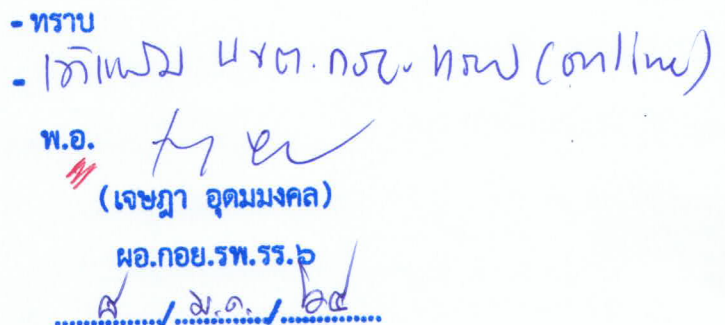 - ทราบ
- เข้าแฟ้ม นขต.กรม. ทราบ (online)
พ.อ.
(เจษฎา อุดมมงคล)
ผอ.กอย.รพ.รร.๖
๕ / ม.ค. / ๖๔